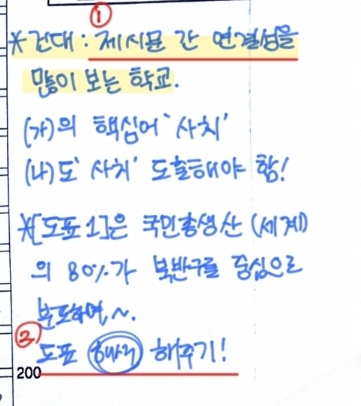 ①
※건대 : 제시문 간 연결성을
많이 보는 학교.
(가)의 핵심어 '사치'
(나)도 '사치' 도출해야 함!
※[도표 1]은 국민총생산 (세계)
의 80%가 북반구를 중심으로
분포하며, ~.
② 도표 해석 해주기!
200